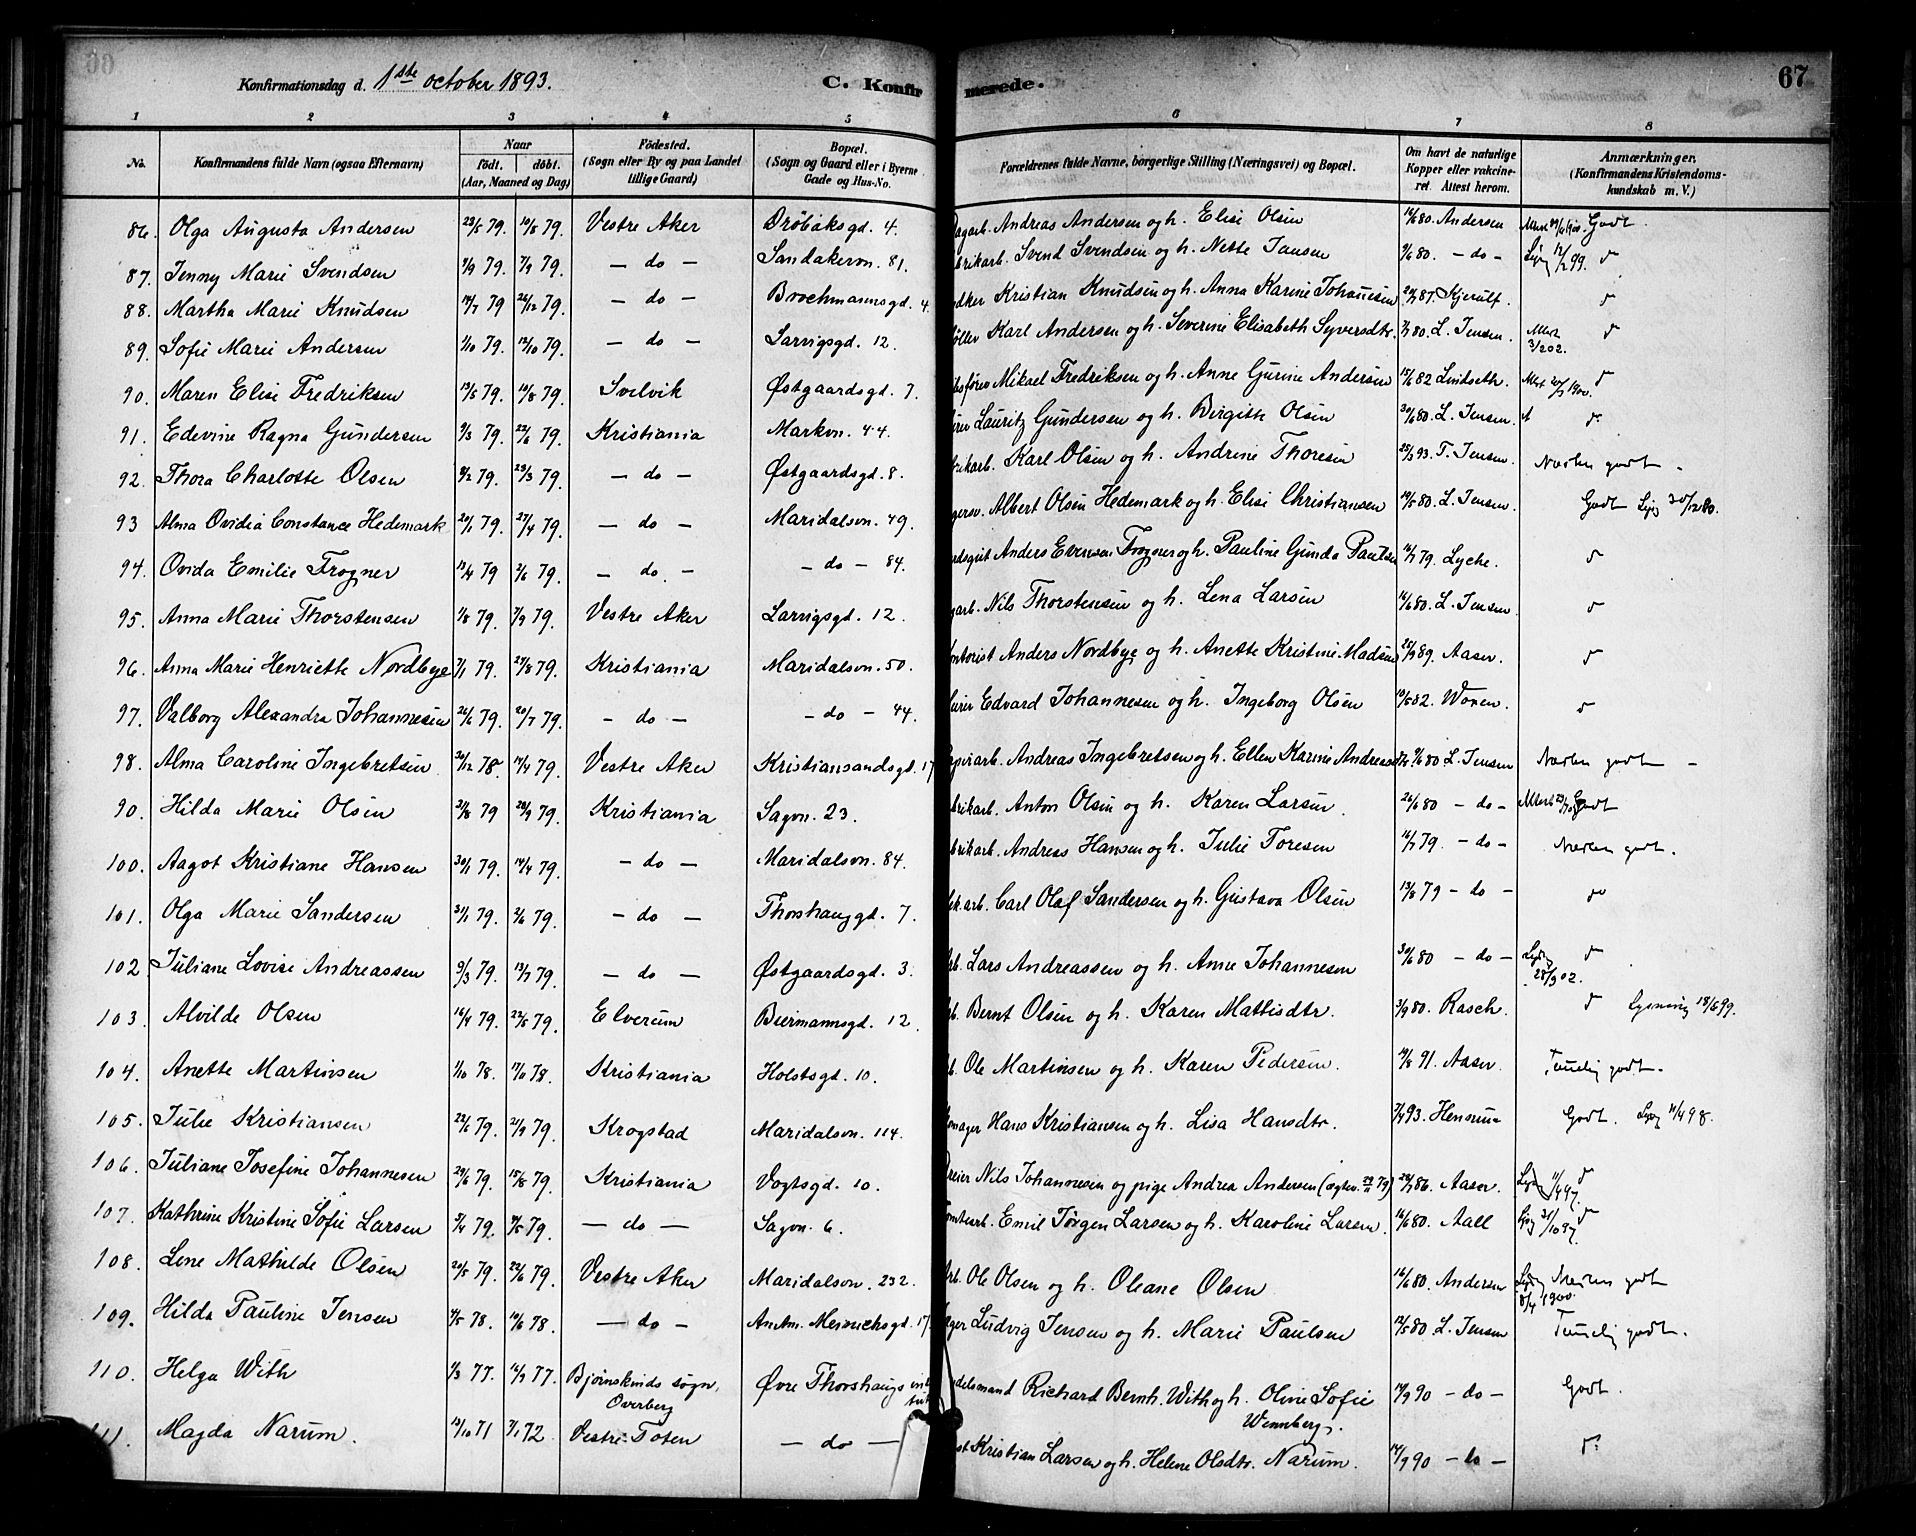 Konfirmationsdag d. 1ste october 1893. C. Konfirmerede. 67
1 2 3 4 5 6 7 8
No. Konfirmandens fulde Navn (ogsaa Efternavn) Naar födt. döbt. (Aar, Maaned og Dag) Födested. (Sogn eller By og paa Landet tillige Gaard) Bopæl. (Sogn og Gaard eller i Byerne Gade og Hus-No. Forældrenes fulde Navne, borgerlige Stilling (Næringsvei) og Bopæl. Om havt de naturlige Kopper eller vakcineret. Attest herom. Anmærkninger. (Konfirmandens Kristendomskundskab m. V.)
86. Olga Augusta Andersen 23/5 79. 10/8 79. Vestre Aker Dröbaksgd. 4. Dagarb. Andreas Andersen og h. Elise Olsen 16/6 80. Andersen Godt.
87. Jenny Marie Svendsen 7/9 79. Vestre Aker — do — Sandakervn. 81. brikarb. Svend Svendsen og h. Nette Jansen 9/6 80. — do — Lysg 12/2 99. d
88. Martha Marie Knudsen 14/7 79 26/12 79. — do — Brochmannsgd. 4 Kristian Knudsen og h. Anna Karine Johannesen 87. Kjerulf d
89. Sofie Marie Andersen 1/10 79. 12/10 79. — do — Larvigsgd. 12. Karl Andersen og h. Severine Elisabeth Syversdtr. 7/7 80. L. Jensen. Attest 3/2 02. d
90. Maren Elise Fredriksen 13/5 79. 10/8 79. Svelvik Østgaardsgd. 7. Mikael Fredriksen og h. Anne Gurine Andersen 15/6 82 Lindseth. d
91. Edevine Ragna Gundersen 9/3 79. 22/6 79. Kristiania Markvn. 44. Lauritz Gundersen og h. Birgitte Olsen 30/6 80. L. Jensen. d
92. Thora Charlotte Olsen 8/2 79. 23/3 79. — do — Østgaardsgd. 8. brikarb. Karl Olsen og h. Andrine Thoresen 25/3 93. T. Jensen. Næsten godt -
93 Alma Ovidia Constance Hedemark 20/1 79. 27/4 79. — do — Maridalsvn. 49. Albert Olsen Hedemark og h. Elise Christiansen 19/5 80. L. Jensen. Godt
94. Ovida Emilie Frogner 13/4 79 2/6 79. — do. — — do — 84. Anders Evensen Frogner og h. Pauline Gunda Paulsen 16/7 79. Lyche. d
95. Anna Marie Thorstensen 1/8 79. 7/9 79. Vestre Aker Larvigsgd. 12. garb. Nils Thorstensen og h. Lena Larsen 16/6 80. L. Jensen. d
96. Anna Marie Henriette Nordbye 7/1 79. 24/8 79. Kristiania Maridalsvn. 50. ontorist Anders Nordbye og h. Anette Kristine Madsen 89. Aaser. d
97. Valborg Alexandra Johannesen 26/6 79. 20/7 79. — do — — do — 44. Edvard Johannesen og h. Ingeborg Olsen 10/5 82. Woxen. d
98. Alma Caroline Ingebretsen 30/12 78. 14/4 79. Vestre Aker Kristiansandsgd. 17 Andreas Ingebretsen og h. Ellen Karine Andreasdtr 9/6 80 L. Jensen Næsten godt -
90. Hilda Marie Olsen 3/8 79 28/9 79. Kristiania Sagvn. 23. brikarb. Anton Olsen og h. Karen Larsen 26/6 80 — do — Godt
100. Aagot Kristiane Hansen 30/1 79. 14/4 79. — do — Maridalsvn. 84. brikarb. Andreas Hansen og h. Julie Toresen 16/7 79. — do — Næsten godt.
101. Olga Marie Sandersen 31/1 79. 2/6 79. — do — Thorshauggd. 7. arb. Carl Olaf Sandersen og h. Gustava Olsen 13/8 79 — do — d
102 Juliane Lovise Andreassen 9/3 79. 13/7 79. — do — Østgaardsgd. 3. rb. Lars Andreassen og h. Anne Johannesen 30/6 80 — do — Lysg 28/9 02. d
103. Alvilde Olsen 16/4 79. 22/5 79. Elverum Biermannsgd. 12. rb. Bernt Olsen og h. Karen Mattisdtr. 3/9 80. Rasch. d Lysning 18/6 99.
104. Anette Martinsen 1/10 78. 17/0 78. Kristiania Holstsgd. 10. Ole Martinsen og h. Karen Pedersen. 19/8 91. Aaser. Temelig godt.
105. Julie Kristiansen 22/6 79. 21/9 79. Krogstad Maridalsvn. 114. omager Hans Kristiansen og h. Lisa Hansdtr. 7/4 93. Hennum Godt. Lysg 11/4 98.
106. Juliane Josefine Johannesen 29/6 79. 15/8 79. Kristiania Vogtsgd. 10. Nils Johannesen og pige Andrea Andersen (ægtev. 79) 86. Aaser. Lysg 11/4 97. d
107. Kathrine Kristine Sofie Larsen 5/4 79. 79. — do — Sagvn. 6. omtearb. Emil Jörgen Larsen og h. Karoline Larsen. 16/6 80. Aall Lysg 31/10 97. d
108. Lene Mathilde Olsen 20/5 79. 22/6 79. Vestre Aker Maridalsvn. 232. rb. Ole Olsen og h. Oleane Olsen 16/6 80. Andersen Lysg 8/4 1900. Næsten godt
109. Hilda Pauline Jensen 4/5 78. 10/6 78. — do — An.An. Meinichsgd. 17 ger Ludvig Jensen og h. Marie Paulsen 12/5 80. L. Jensen Temelig godt.
110. Helga With 1/3 77. 16/9 77. Bjørnskinds sogn, Overberg Øvre Thorshaugs institut delsmand Richard Bernh. With og h. Oline Sofie Wennberg. 14/9 90 — do — Godt.
111. Magda Narum. 12/10 71 7/1 72. Vestre-Toten — do — Kristian Larsen og h. Helene Olsdtr. Narum. 14/9 90 — do — d